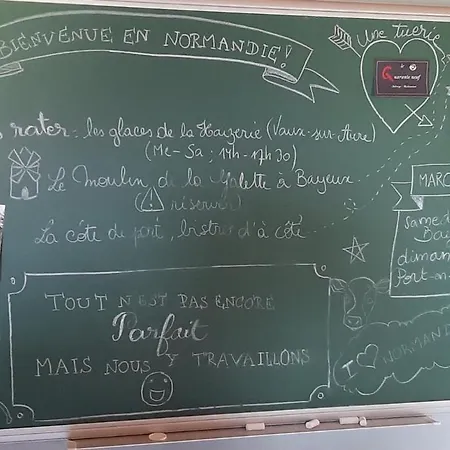 BIENVENUE EN NORMANDIE !
Une tuerie
Quarante neuf
rater : les glaces de la Houzerie (Vaux-sur-Aure)
(Me-Sa ; 14h-17h30)
Le Moulin de la Galette à Bayeux
(⚠ réserver)
La côte de port, bistrot d'à côté
MARC
Same
Ba
diman
Port-en-
TOUT N'EST PAS ENCORE
Parfait
MAIS NOUS Y TRAVAILLONS
I ♡ NORMAND